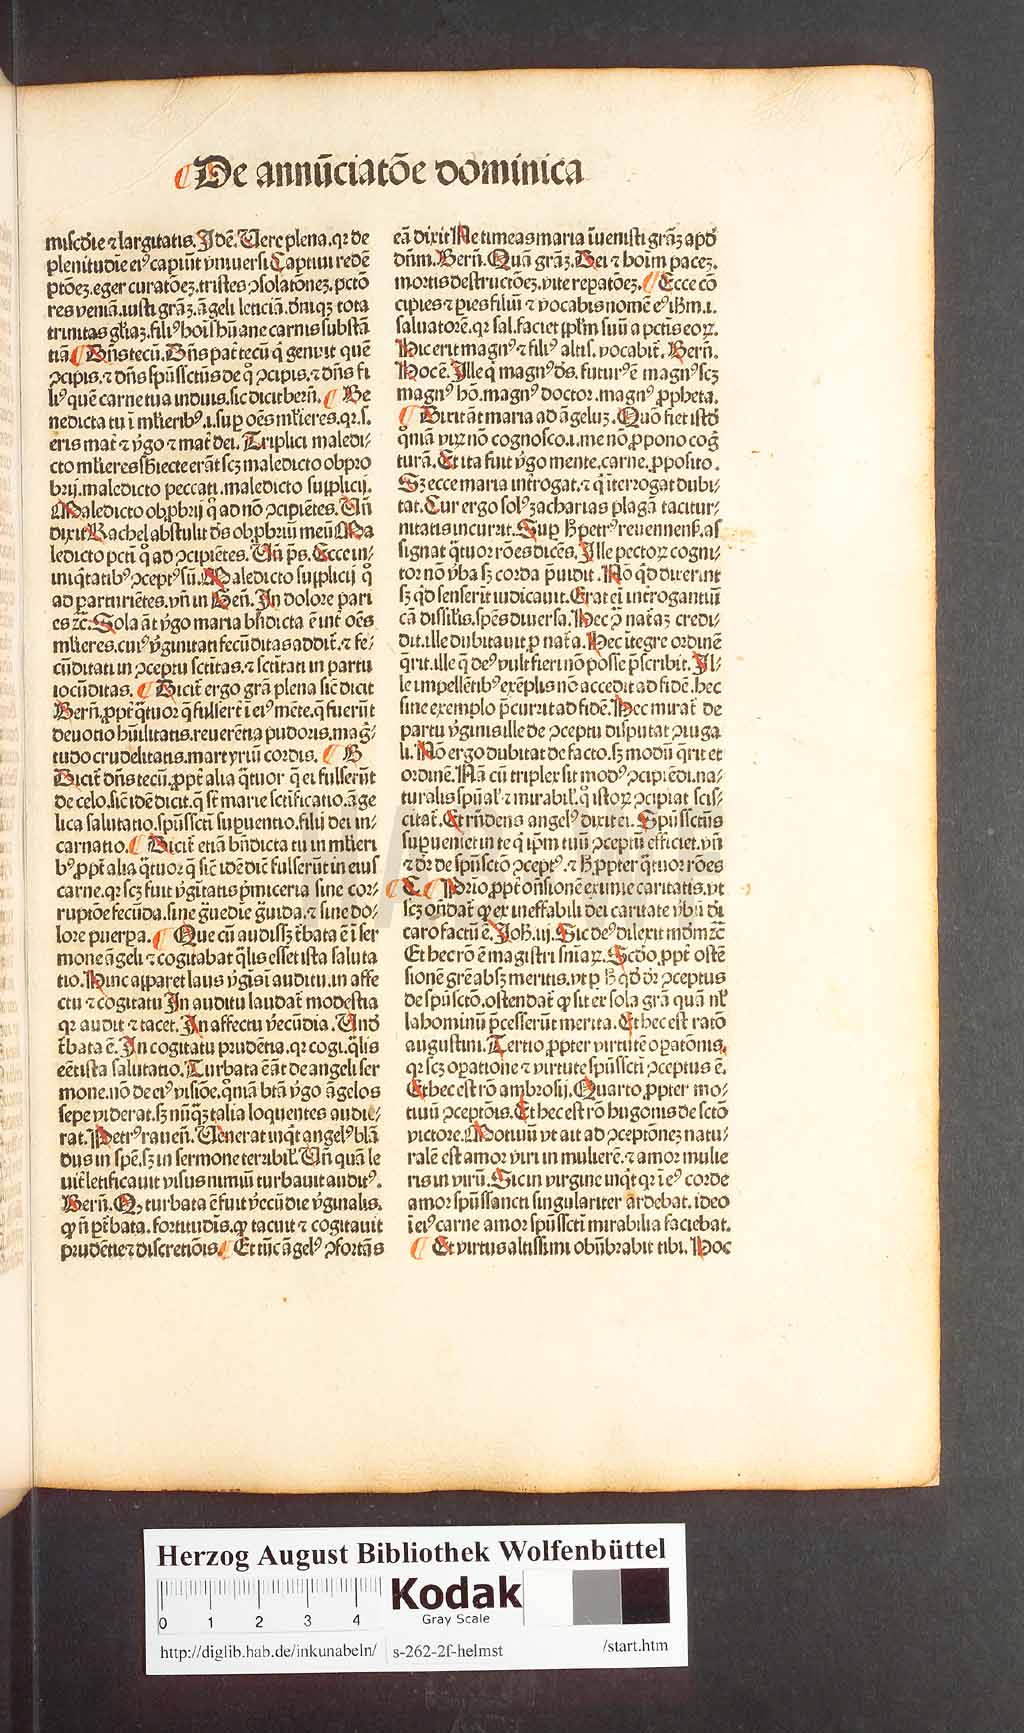 De annūciatōe dominica
miscdie ⁊ largitatis. Idē. Uere plena. qꝛ de
plenitudīe eiꝰ capiūt vniuersi Captiui redē
ptōeꝫ. eger curatōeꝫ. tristes ↄsolatōneꝫ. pctō
res veniā. iusti grāꝫ. āgeli leticiā. dniqꝫ tota
trinitas gliaꝫ. filiꝰ hoīs hūane carnis substā
tiā ¶ Dn̄s tecū. Dn̄s pat̄ tecū q̄ genuit quē
ↄcipis. ⁊ dn̄s spūssctūs de q̊ ↄcipis. ⁊ dn̄s fi
liꝰ quē carne tua induis. sic dicit bern̄. ¶ Be
nedicta tu ī mlieribꝰ. i. suꝑ oēs mlieres. qꝛ. s.
eris mat̄ ⁊ v̄go ⁊ mat̄ dei. Triplici maledi⸗
cto mlieres sbiecte erāt scꝫ maledicto obpro
brij. maledicto peccati. maledicto supplicij.
Maledicto obꝓbrij q̊ ad nō ↄcipiētes. Un̄
dixit Rachel abstulit ds̄ obꝓbriū meū Ma
ledicto pcti q̊ ad ↄcipiētes. Un̄ p̄s. Ecce in⸗
iniq̄tatibꝰ ↄceptꝰ sū. Maledicto supplicij q̊
ad parturiētes. vn̄ in Gen̄. In dolore pari
es ⁊c̄. Sola āt v̄go maria bn̄dicta ē int̄ oēs
mlieres. cuiꝰ v̄ginitati fecūditas addit̄. ⁊ fe⸗
cūditati in ↄceptu sctitas. ⁊ sctitati in partu
iocūditas. ¶ Dicit̄ ergo grā plena sic̄ dicit
Bern̄. ꝓpt̄ q̄tuor q̄ fulsert̄ ī eiꝰ mēte. q̄ fuerūt
deuotio hūilitatis. reuerētia pudoris. maḡi
tudo crudelitatis. martyriū cordis. ¶ B
Dicit̄ dn̄s tecū. ꝓpt̄ alia q̄tuor q̄ ei fulserūt
de celo. sic̄ idē dicit. q̄ st̄ marie sctificatio. āge
lica salutatio. spūsscti suꝑuentio. filij dei in⸗
carnatio. ¶ Dicit̄ etiā bn̄dicta tu in mlieri
bꝰ. ꝓpt̄ alia q̄tuor q̄ sic̄ idē dic̄ fulserūt in eius
carne. qꝛ scꝫ fuit v̄gītatis p̄miceria sine cor⸗
ruptōe fecūda. sine g̊uedie g̊uida. ⁊ sine do⸗
lore puerꝑa. ¶ Que cū audissꝫ t̄bata ē ī ser
mone āgeli ⁊ cogitabat q̄lis esset ista saluta
tio. Hinc apparet laus v̄gīs ī auditu. in affe
ctu ⁊ cogitatu In auditu laudat̄ modestia
qꝛ audit ⁊ tacet. In affectu v̄ecūdia. Und
t̄bata ē. In cogitatu prudētia. qꝛ cogi. q̄lis
eēt ista salutatio. Turbata ē āt de angeli ser
mone. nō de eiꝰ visiōe. qm̄ā btā v̄go āgelos
sepe viderat. sꝫ nūq̄ꝫ talia loquentes audie⸗
rat. Petrꝰ rauen̄. Uenerat inqt̄ angelꝰ blā
dus in spē. sꝫ in sermone terribil̄. Un̄ quā le
uit̄ letificauit visus nimiū turbauit auditꝰ.
Bern̄. Qꝫ turbata ē fuit v̄ecūdie v̄ginalis.
qꝙ n̄ ꝑt̄bata. fortitudīs. qꝙ tacuit ⁊ cogitauit
prudētie ⁊ discretiōis ¶ Et tūc āgelꝰ ↄfortās
eā dixit Ne timeas maria īuenisti grāꝫ apd̄
dn̄m. Bern̄. Quā grāꝫ. Dei ⁊ hoīm paceꝫ.
mortis destructōeꝫ. vite reꝑatōeꝫ. ¶ Ecce cō
cipies ⁊ paries filiū ⁊ vocabis nomē eꝰ ihm̄. i.
saluatorē. qꝛ sal. faciet pplm̄ suū a pctis eoꝝ.
Hic erit magnꝰ ⁊ filiꝰ altis. vocabit̄. Bern̄.
Hoc ē. Ille q̄ magnꝰ ds̄. futurꝰ ē magnꝰ scꝫ
magnꝰ hō. magnꝰ doctor. magnꝰ ꝓpheta.
¶ Dixit āt maria ad āgeluꝫ. Quō fiet istd̄
qm̄iā viꝝ nō cognosco. i. me nō ꝓpono coḡ
turā. Et ita fuit v̄go mente. carne. ꝓposito.
Sꝫ ecce maria int̄rogat. ⁊ q̄ interrogat dubi⸗
tat. Cur ergo solꝰ zacharias plagā tacitur⸗
nitatis incurrit. Suꝑ h̄ petrꝰ reuennens̄. as
signat q̄tuor rōes dicēs. Ille pectorꝝ cogni⸗
tor nō v̄ba sꝫ corda p̄uidit. Nō qd̄ dixerint
sꝫ qd̄ senserīt iudicauit. Erat eī int̄rogantiū
cā dissilis. spēs diuersa. Hec ꝯ̄ naturaꝫ credi⸗
dit. ille dubitauit ꝓ nat̄a. Hec īntegre ordinē
q̄rit. ille q̄ deꝰ vult fieri nō posse p̄scribit. Il⸗
le impellētibꝰ exēplis nō accedit ad fidē. hec
sine exemplo p̄currit ad fidē. Hec mirat̄ de
partu v̄ginis ille de ↄceptu disputat ↄiuga
li. Nō ergo dubitat de facto. sꝫ modū q̄rit et
ordinē. Nā cū triplex sit modꝰ ↄcipiēdi. na⸗
turalis spūal̄ ⁊ mirabil̄. q̊ istoꝝ ↄcipiat scis⸗
citat̄. Et rn̄dens angelꝰ dixit ei. Spūssctūs
suꝑueniet in te q̄ ipm̄ tuū ↄceptū efficiet. vn̄
⁊ dr̄ de spūssctō ↄceptꝰ. ⁊ h̄ ꝓpter q̄tuor rōes
¶ C. ¶ Prio ꝓpt̄ on̄sionē eximie caritatis. vt
scꝫ on̄dat̄ qꝙ ex ineffabili dei caritate v̄bū di
caro factū ē. Joh̄. iij. Sic deꝰ dilexit mdm̄ ⁊c̄
Et hec rō ē magistri snīaꝝ. Scdo ꝓpt̄ ostē
sionē grē absꝫ meritis. vt ꝑ h̄ qd̄ dr̄ ↄceptus
de spūsctō. ostendat̄ qꝙ sit ex sola grā quā nl̄
la hominū p̄cesserūt merita. Et hec est ratō
augustini. Tertio ꝓpter virtutē oꝑatōnis.
qꝛ scꝫ oꝑatione ⁊ virtute spūsscti ↄceptus ē.
Et hec est rō ambrosij. Quarto ꝓpter mo⸗
tiuū ↄceptōis. Et hec est rō hugonis de sctō
victore. Motiuū vt ait ad ↄceptōneꝫ natu⸗
ralē est amor viri in mulierē. ⁊ amor mulie
ris in virū. Sic in virgine inqt̄ qꝛ ī eꝰ corde
amor spūssancti singulariter ardebat. ideo
ī eiꝰ carne amor spūsscti mirabilia faciebat.
¶ Et virtus altissimi obūbrabit tibi. Hoc
Herzog August Bibliothek Wolfenbüttel
0 1 2 3 4
Kodak
Gray Scale
http://diglib.hab.de/inkunabeln/ s-262-2f-helmst /start.htm